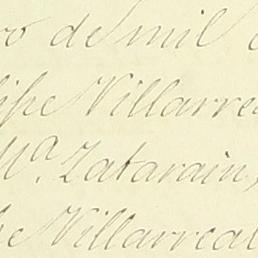 ro de mil
lipe Villarrea
Mª. Zatarain,
pe Villarreal